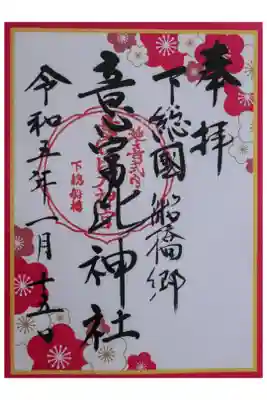 奉拝
下総國船橋郷
意富比神社
令和五年一月十五日
下総船橋